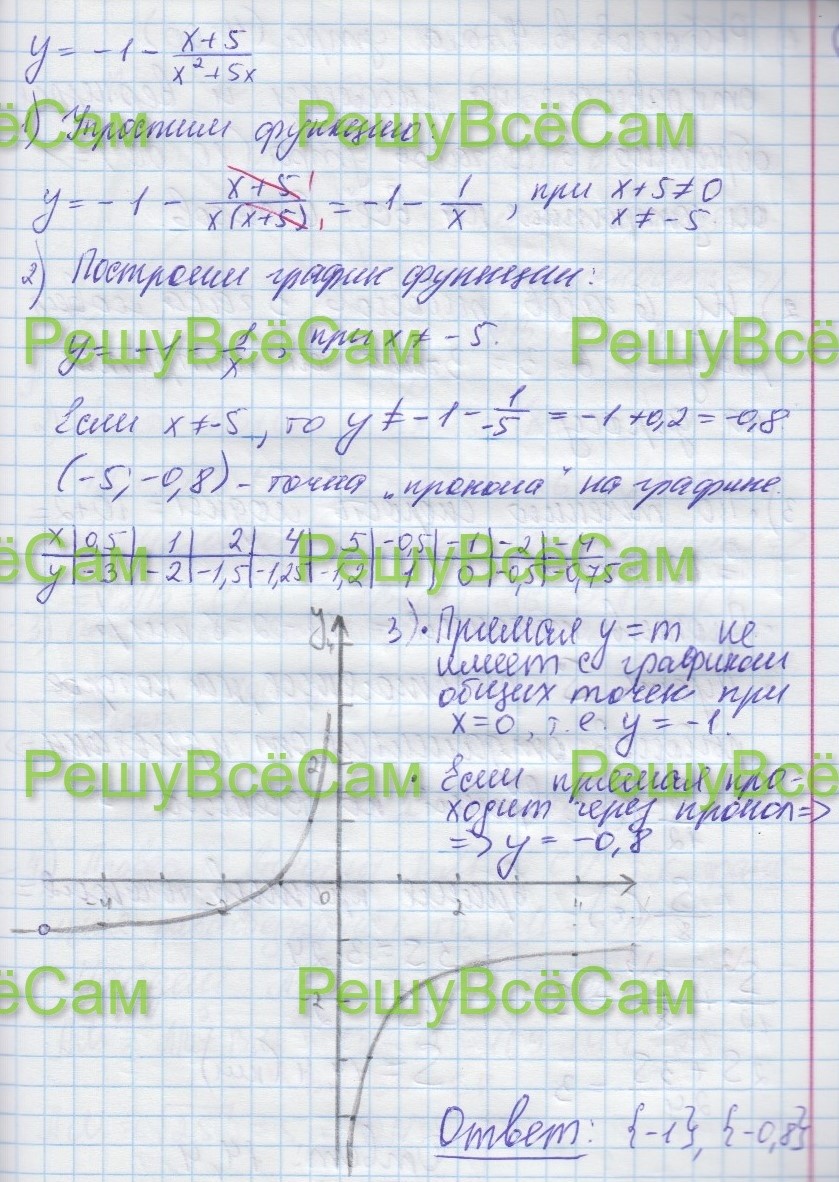 y = -1 - (x+5)/(x²+5x)
1) Упростим функцию:
y = -1 - (x+5)/(x(x+5)) = -1 - 1/x , при x+5≠0
x ≠ -5
2) Построим график функции:
y = -1 - 1/x , при x ≠ -5.
Если x≠-5, то y ≠ -1 - 1/-5 = -1+0,2 = -0,8
(-5; -0,8) - точка „прокола“ на графике.
x | 0,5 | 1 | 2 | 4 | 5 | -0,5 | -1 | -2 | -4
y | -3 | -2 | -1,5 | -1,25 | -1,2 | 1 | 0 | -0,5 | -0,75
y
4
3) • Прямая y = m не
имеет с графиком
общих точек при
x=0, т.е. y = -1.
2
• Если прямая про-
ходит через прокол =>
=> y = -0,8
-4
-2
0
2
4
-2
Ответ: {-1}, {-0,8}
РешуВсёСам
РешуВсёСам
РешуВсёСам
РешуВсё
ёСам
РешуВсёСам
РешуВсёСам
РешуВсё
ёСам
РешуВсёСам